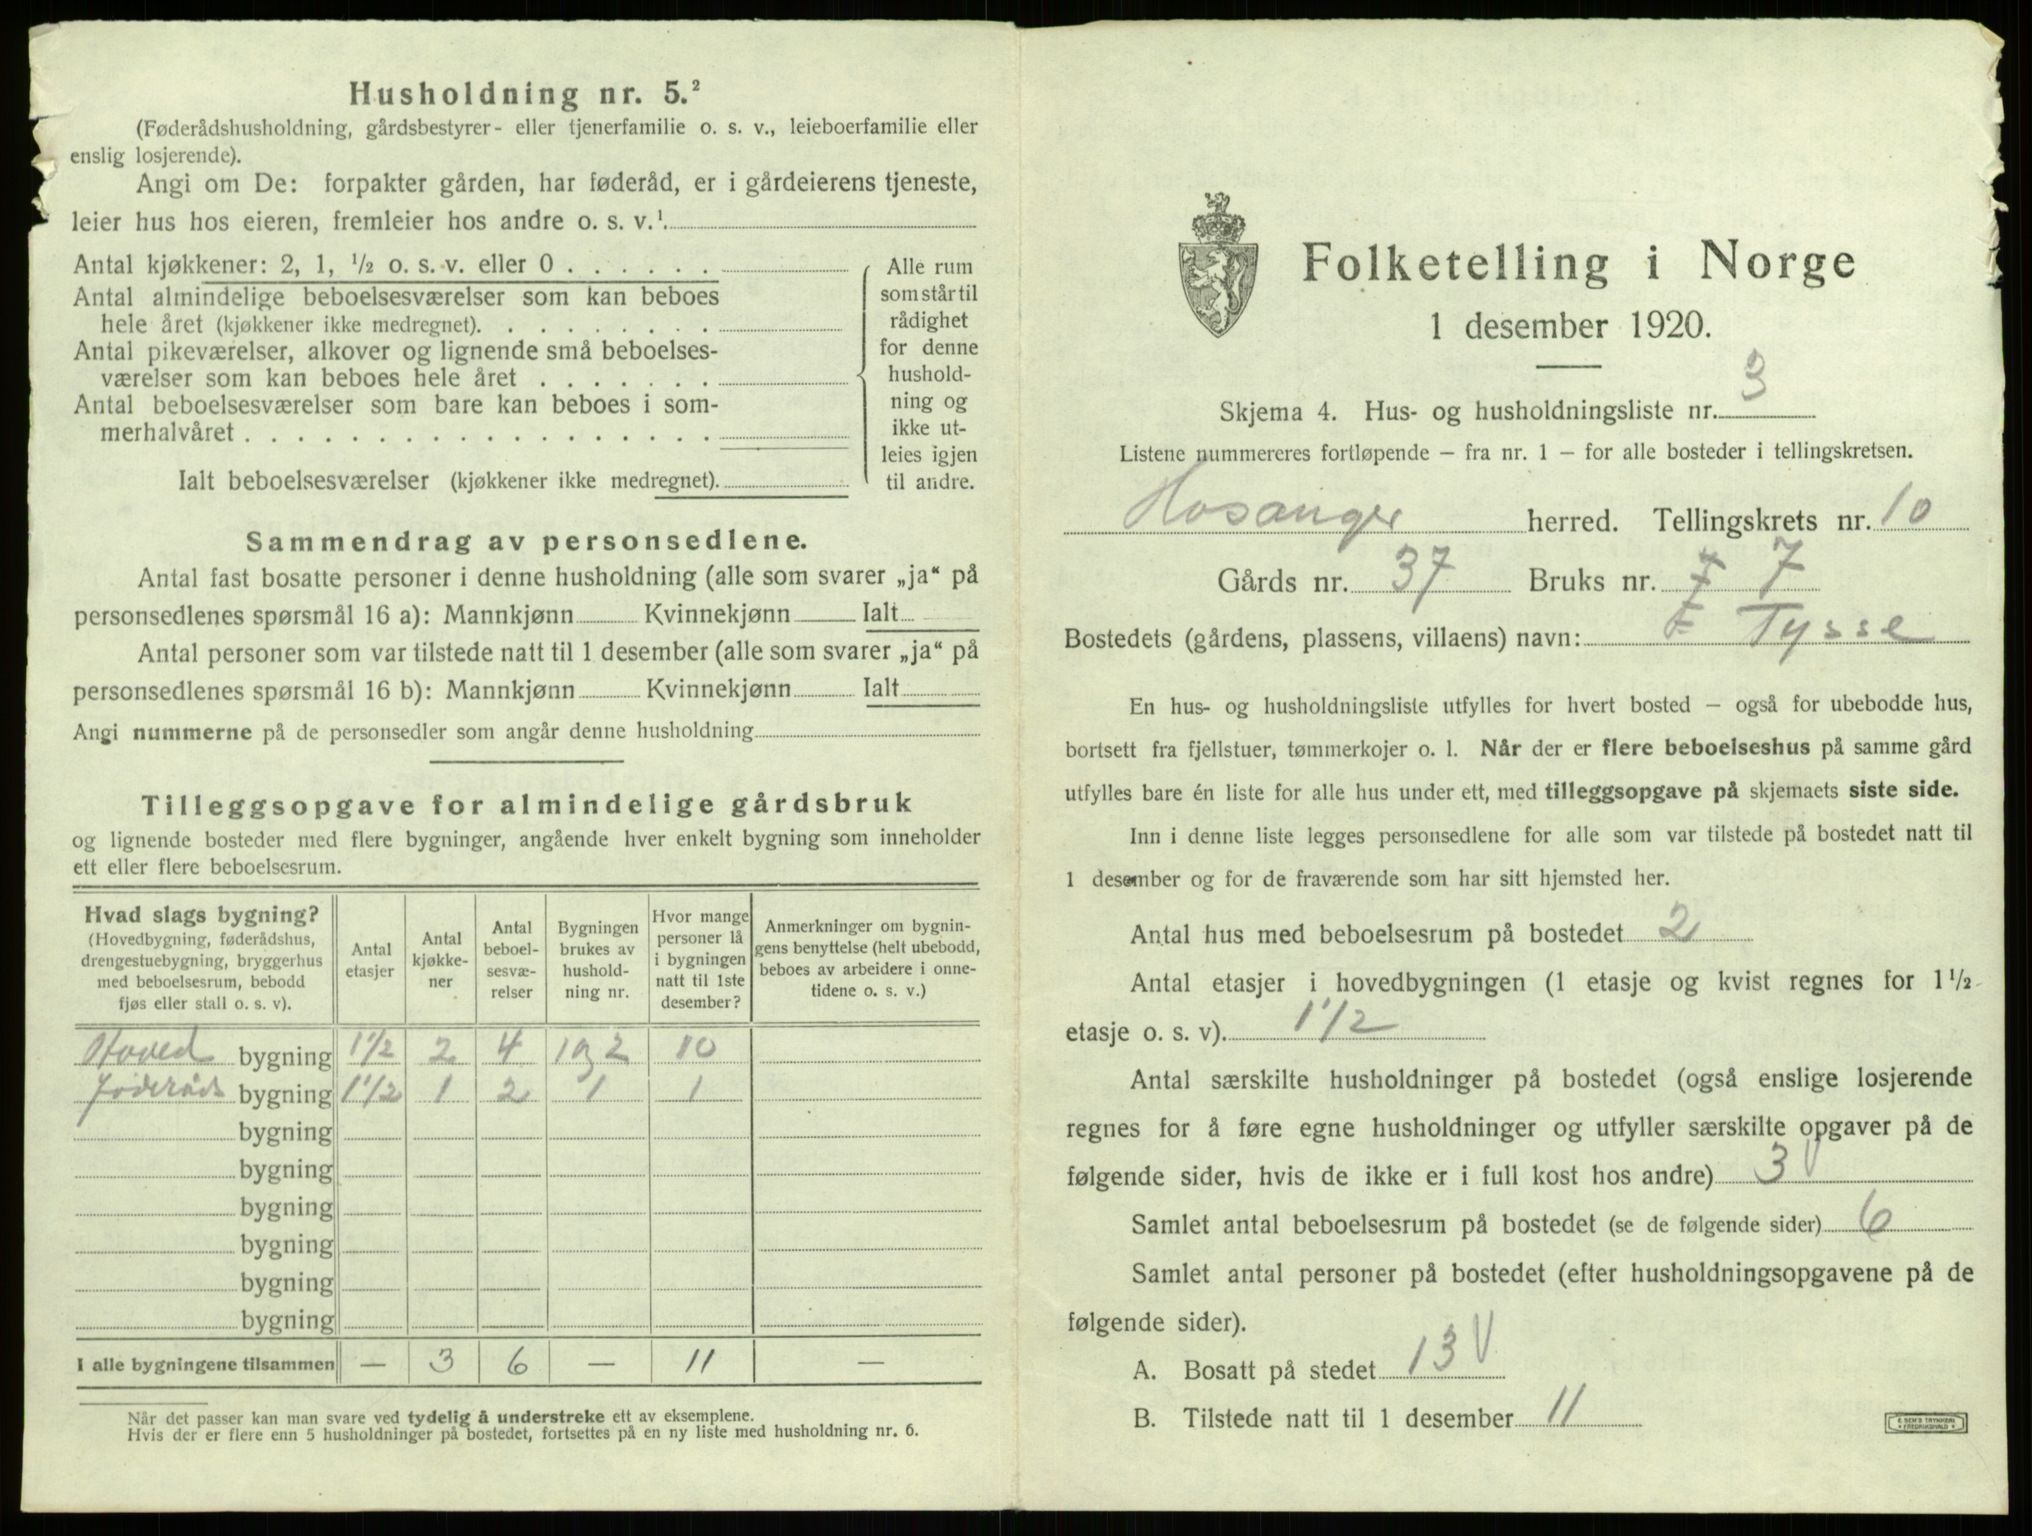 Husholdning nr. 5.²
(Føderådshusholdning, gårdsbestyrer- eller tjenerfamilie o. s. v., leieboerfamilie eller
enslig losjerende).
Angi om De: forpakter gården, har føderåd, er i gårdeierens tjeneste,
leier hus hos eieren, fremleier hos andre o. s. v.¹
Antal kjøkkener: 2, 1, ¹/₂ o. s. v. eller 0 . . . . . .
Antal almindelige beboelsesværelser som kan beboes
hele året (kjøkkener ikke medregnet). . . . . . . . .
Antal pikeværelser, alkover og lignende små beboelses-
værelser som kan beboes hele året . . . . . . .
Antal beboelsesværelser som bare kan beboes i som-
merhalvåret . . . . . . . . . . . . . . . . . .
Ialt beboelsesværelser (kjøkkener ikke medregnet).
Alle rum
som står til
rådighet
for denne
hushold-
ning og
ikke ut-
leies igjen
til andre.
Sammendrag av personsedlene.
Antal fast bosatte personer i denne husholdning (alle som svarer „ja“ på
personsedlenes spørsmål 16 a): Mannkjønn Kvinnekjønn Ialt
Antal personer som var tilstede natt til 1 desember (alle som svarer „ja“ på
personsedlenes spørsmål 16 b): Mannkjønn Kvinnekjønn Ialt
Angi nummerne på de personsedler som angår denne husholdning
Tilleggsopgave for almindelige gårdsbruk
og lignende bosteder med flere bygninger, angående hver enkelt bygning som inneholder
ett eller flere beboelsesrum.
Hvad slags bygning?
(Hovedbygning, føderådshus,
drengestuebygning, bryggerhus
med beboelsesrum, bebodd
fjøs eller stall o. s. v).
Antal
etasjer
Antal
kjøkke-
ner
Antal
beboel-
sesvæ-
relser
Bygningen
brukes av
hushold-
ning nr.
Hvor mange
personer lå
i bygningen
natt til 1ste
desember?
Anmerkninger om bygnin-
gens benyttelse (helt ubebodd,
beboes av arbeidere i onne-
tidene o. s. v.)
Hoved bygning 1½ 2 4 1 og 2 10
Føderåds bygning 1½ 1 2 1 1
bygning
bygning
bygning
bygning
bygning
bygning
I alle bygningene tilsammen — 3 6 — 11 —
Når det passer kan man svare ved tydelig å understreke ett av eksemplene.
Hvis der er flere enn 5 husholdninger på bostedet, fortsettes på en ny liste med husholdning nr. 6.
Folketelling i Norge
1 desember 1920.
Skjema 4. Hus- og husholdningsliste nr. 3
Listene nummereres fortløpende – fra nr. 1 – for alle bosteder i tellingskretsen.
Hosanger herred. Tellingskrets nr. 10
Gårds nr. 37 Bruks nr. 7 7
Bostedets (gårdens, plassens, villaens) navn: Tysse
En hus- og husholdningsliste utfylles for hvert bosted – også for ubebodde hus,
bortsett fra fjellstuer, tømmerkojer o. l. Når der er flere beboelseshus på samme gård
utfylles bare én liste for alle hus under ett, med tilleggsopgave på skjemaets siste side.
Inn i denne liste legges personsedlene for alle som var tilstede på bostedet natt til
1 desember og for de fraværende som har sitt hjemsted her.
Antal hus med beboelsesrum på bostedet 2
Antal etasjer i hovedbygningen (1 etasje og kvist regnes for 1¹/₂
etasje o. s. v). 1½
Antal særskilte husholdninger på bostedet (også enslige losjerende
regnes for å føre egne husholdninger og utfyller særskilte opgaver på de
følgende sider, hvis de ikke er i full kost hos andre) 3 V
Samlet antal beboelsesrum på bostedet (se de følgende sider) 6
Samlet antal personer på bostedet (efter husholdningsopgavene på de
følgende sider).
A. Bosatt på stedet 13 V
B. Tilstede natt til 1 desember 11